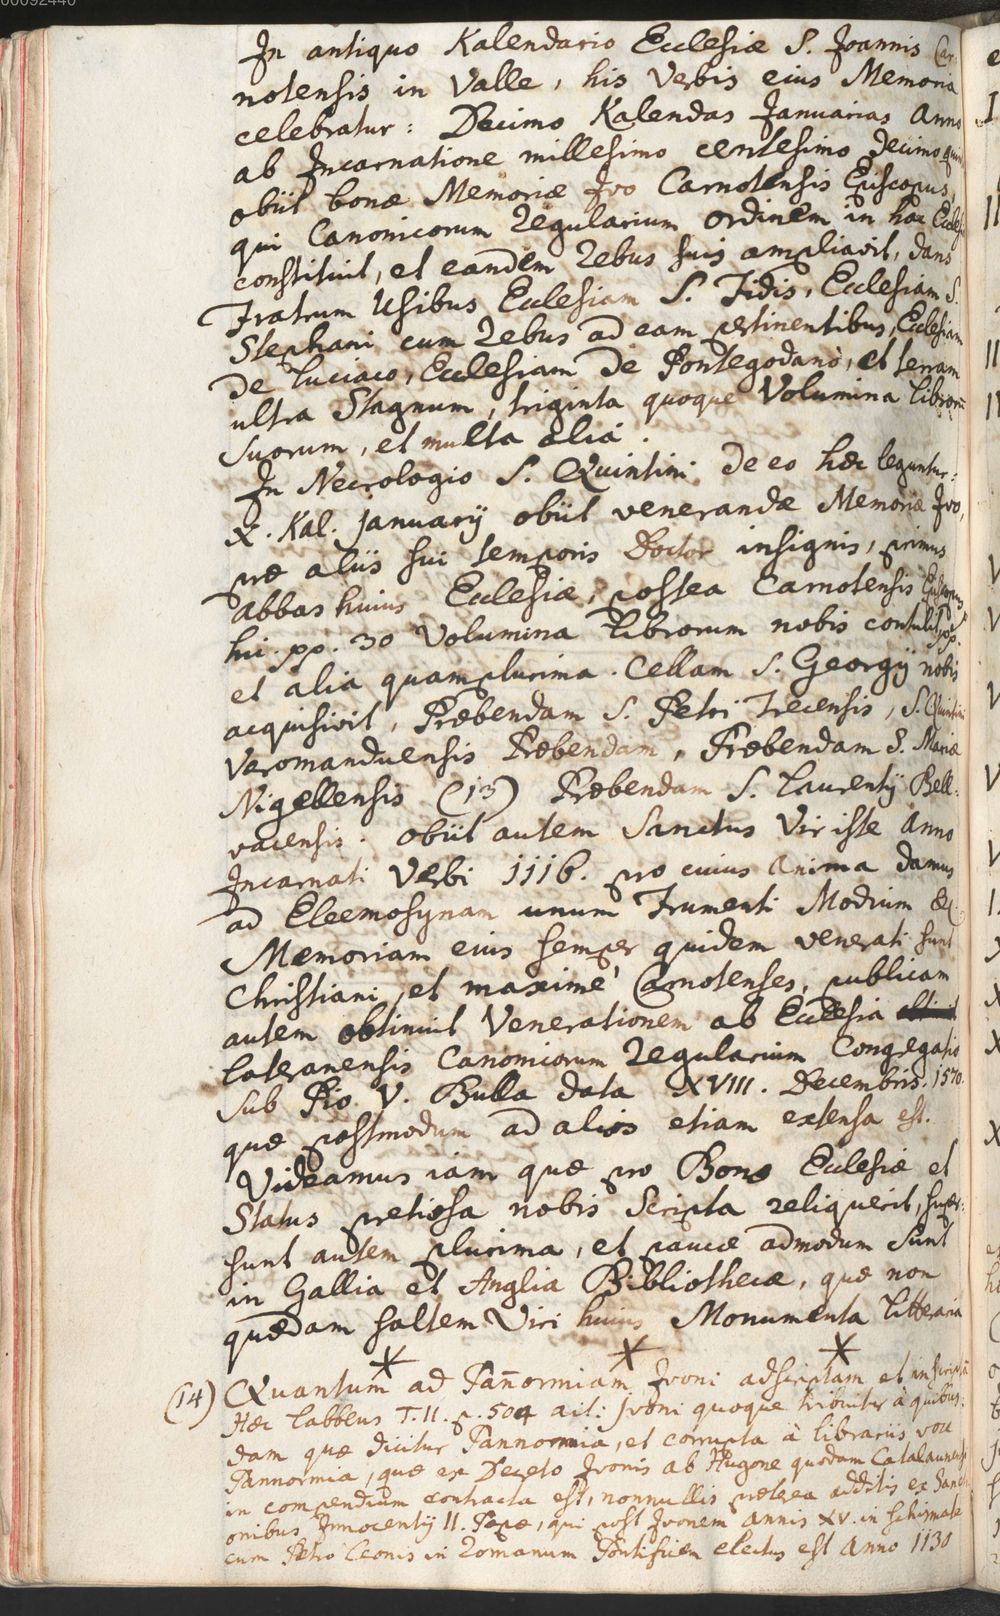 00092440
In antiquo Kalendario Ecclesiæ S. Joannis Car
notensis in Valle, his Verbis eius Memoria
celebratur: Decimo Kalendas Januarias Anno
ab Incarnatione millesimo centesimo decimo
obiit bonæ Memoriæ Ivo Carnotensis Episcopus,
qui Canonicorum Regularium ordinem in hac Eccles
constituit, et eandem Rebus suis ampliavit, dans
Fratrum Usibus Ecclesiam S. Fidis, Ecclesiam S.
Stephani cum Rebus ad eam pertinentibus, Ecclesiam
De Luciaco, Ecclesiam de Pontegodano, et terram
ultra Stagnum, triginta quoque Volumina Librorū
suorum, et multa alia.
In Necrologio S. Quintini de eo hæc leguntur:
X. Kal. Januarij obiit venerandæ Memoriæ Ivo,
præ aliis sui temporis Doctor insignis, primus
Abbas huius Ecclesiæ, postea Carnotensis Episcopus
hic. pp. 30 Volumina Librorum nobis contulit pp.
et alia quamplurima. Cellam S. Georgij nobis
acquisivit, Præbendam S. Petri Trecensis, S. Quintini
Varomanduensis Præbendam, Præbendam S. Mariæ
Nigellensis (13) Præbendam S. Laurentij Bell:
vacensis. obiit autem Sanctus Vir iste Anno
Incarnati Verbi 1116. pro cuius Anima damus
ad Eleemosynam unum Frumenti Modium &c
Memoriam eius semper quidem venerati sunt
Christiani, et maximè Carnotenses, publicam
autem obtinuit Venerationem ab Ecclesia
Lateranensis Canonicorum Regularium Congregatio
sub Pio V. Bulla data XVIII. Decembris. 1570.
quæ postmodum ad alios etiam extensa est.
Videamus iam quæ pro Bono Ecclesiæ et
Status pretiosa nobis Scripta reliquerit, super:
sunt autem plurima, et paucæ admodum sunt
in Gallia et Anglia Bibliothecæ, quæ non
quædam saltem Viri huius Monumenta Litteraria
(14) Quantum ad Pañormiam Ivoni adscriptam et inscriptā
Hæc Labbeus T. II. p. 504 ait: Ivoni quoque tribuitur à quibus:
dam quæ dicitur Pannormia, et corrupta à librariis voce
Pannormia, quæ ex Decreto Ivonis ab Hugone quodam Catalaunensi
in compendium contracta est, nonnullis præterea additis ex Sancti
onibus Innocentij II. Papæ, qui post Ivonem annis XV. in schismate
cum Petro Leonis in Romanum Pontificem electus est Anno 1130